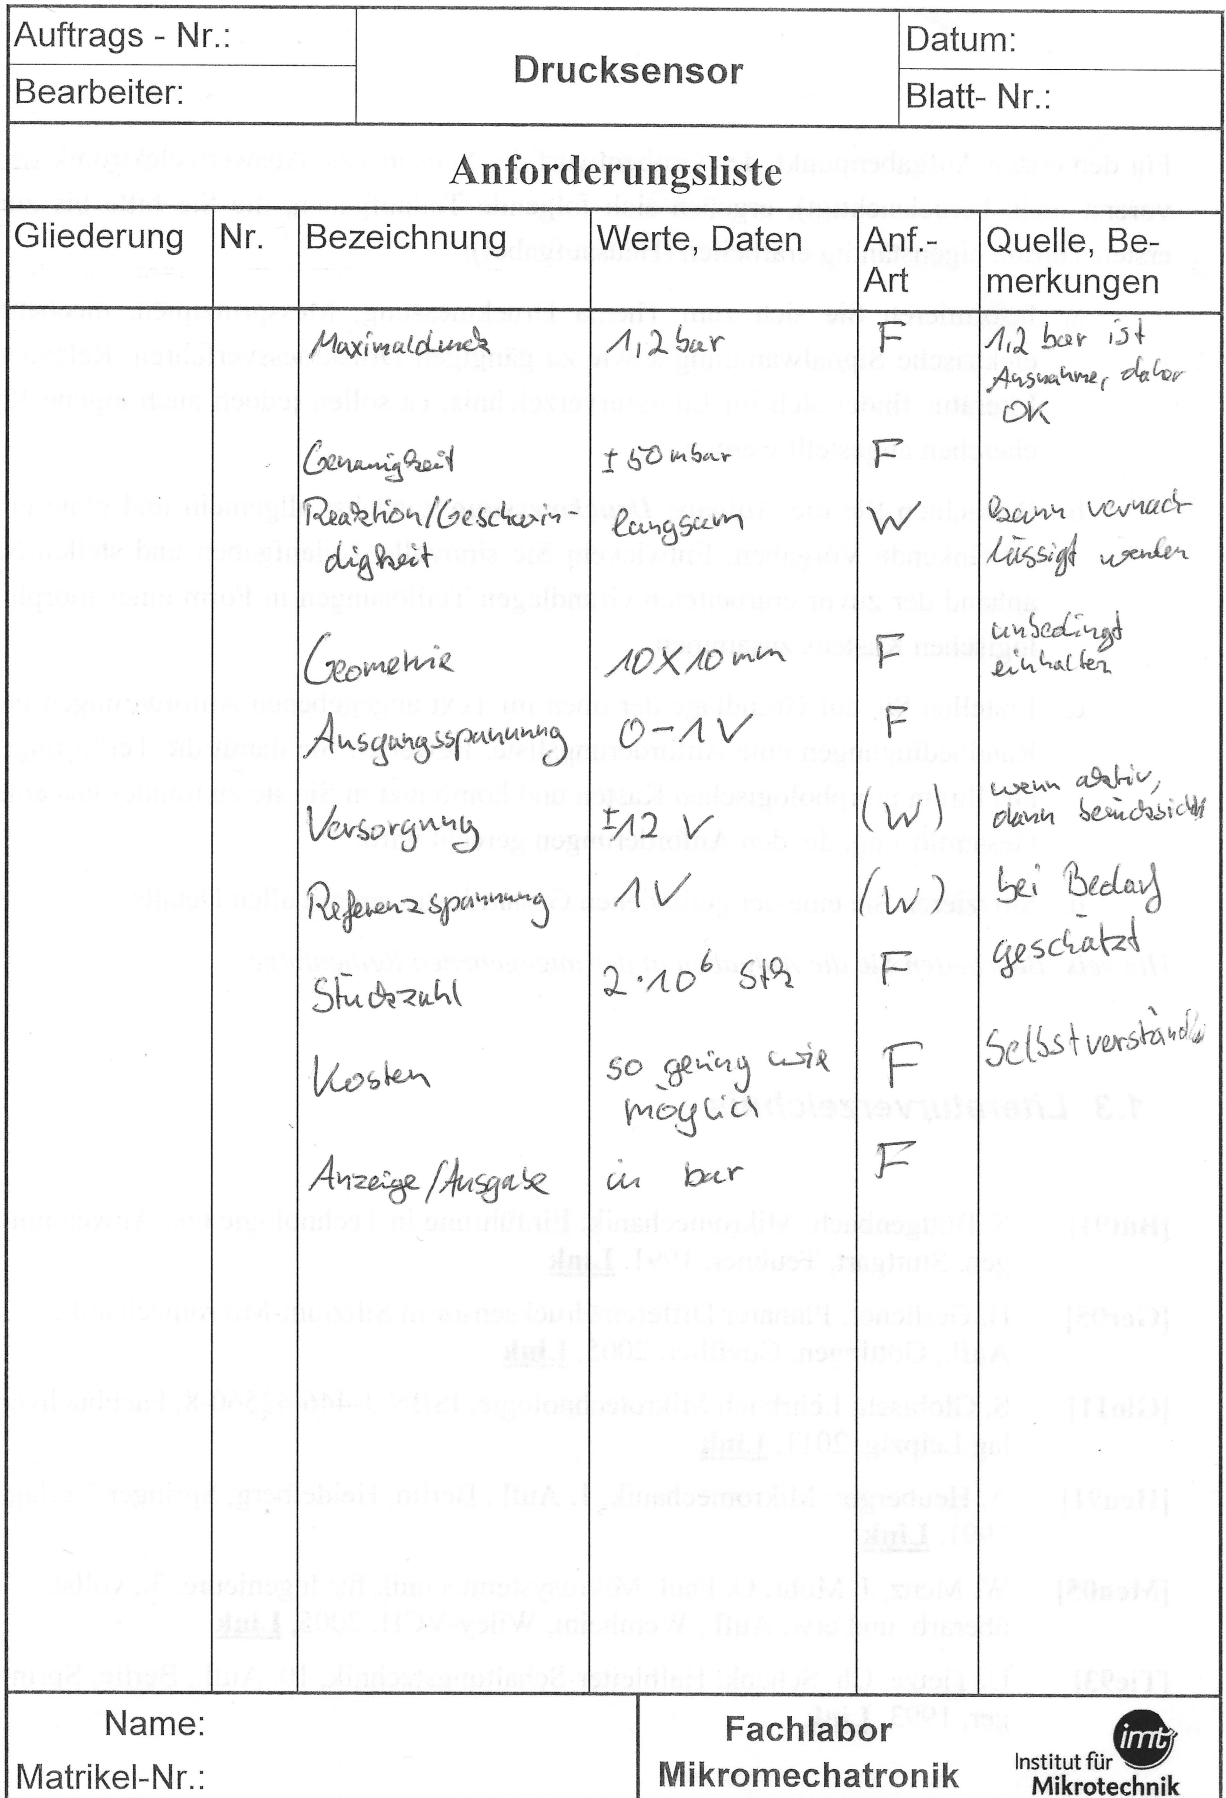 Auftrags - Nr.:
Bearbeiter:
Drucksensor
Datum:
Blatt- Nr.:
Anforderungsliste
Gliederung Nr. Bezeichnung Werte, Daten Anf.- Quelle, Be-
Art merkungen
Maximaldruck 1,2 bar F 1,2 bar ist
Ausnahme, daher
OK
Genauigkeit ± 50 mbar F
Reaktion/Geschwin- langsam W kann vernach
digkeit lässigt werden
Geometrie 10X10 mm F unbedingt
einhalten
Ausgangsspannung 0-1V F
Versorgung ±12 V (W) wenn aktiv,
dann berücksicht
Referenzspannung 1V (W) bei Bedarf
Stückzahl 2·10⁶ Stk F geschätzt
Kosten so gering wie F Selbstverständli
möglich
Anzeige/Ausgabe in bar F
Name:
Matrikel-Nr.:
Fachlabor
Mikromechatronik
imt
Institut für
Mikrotechnik